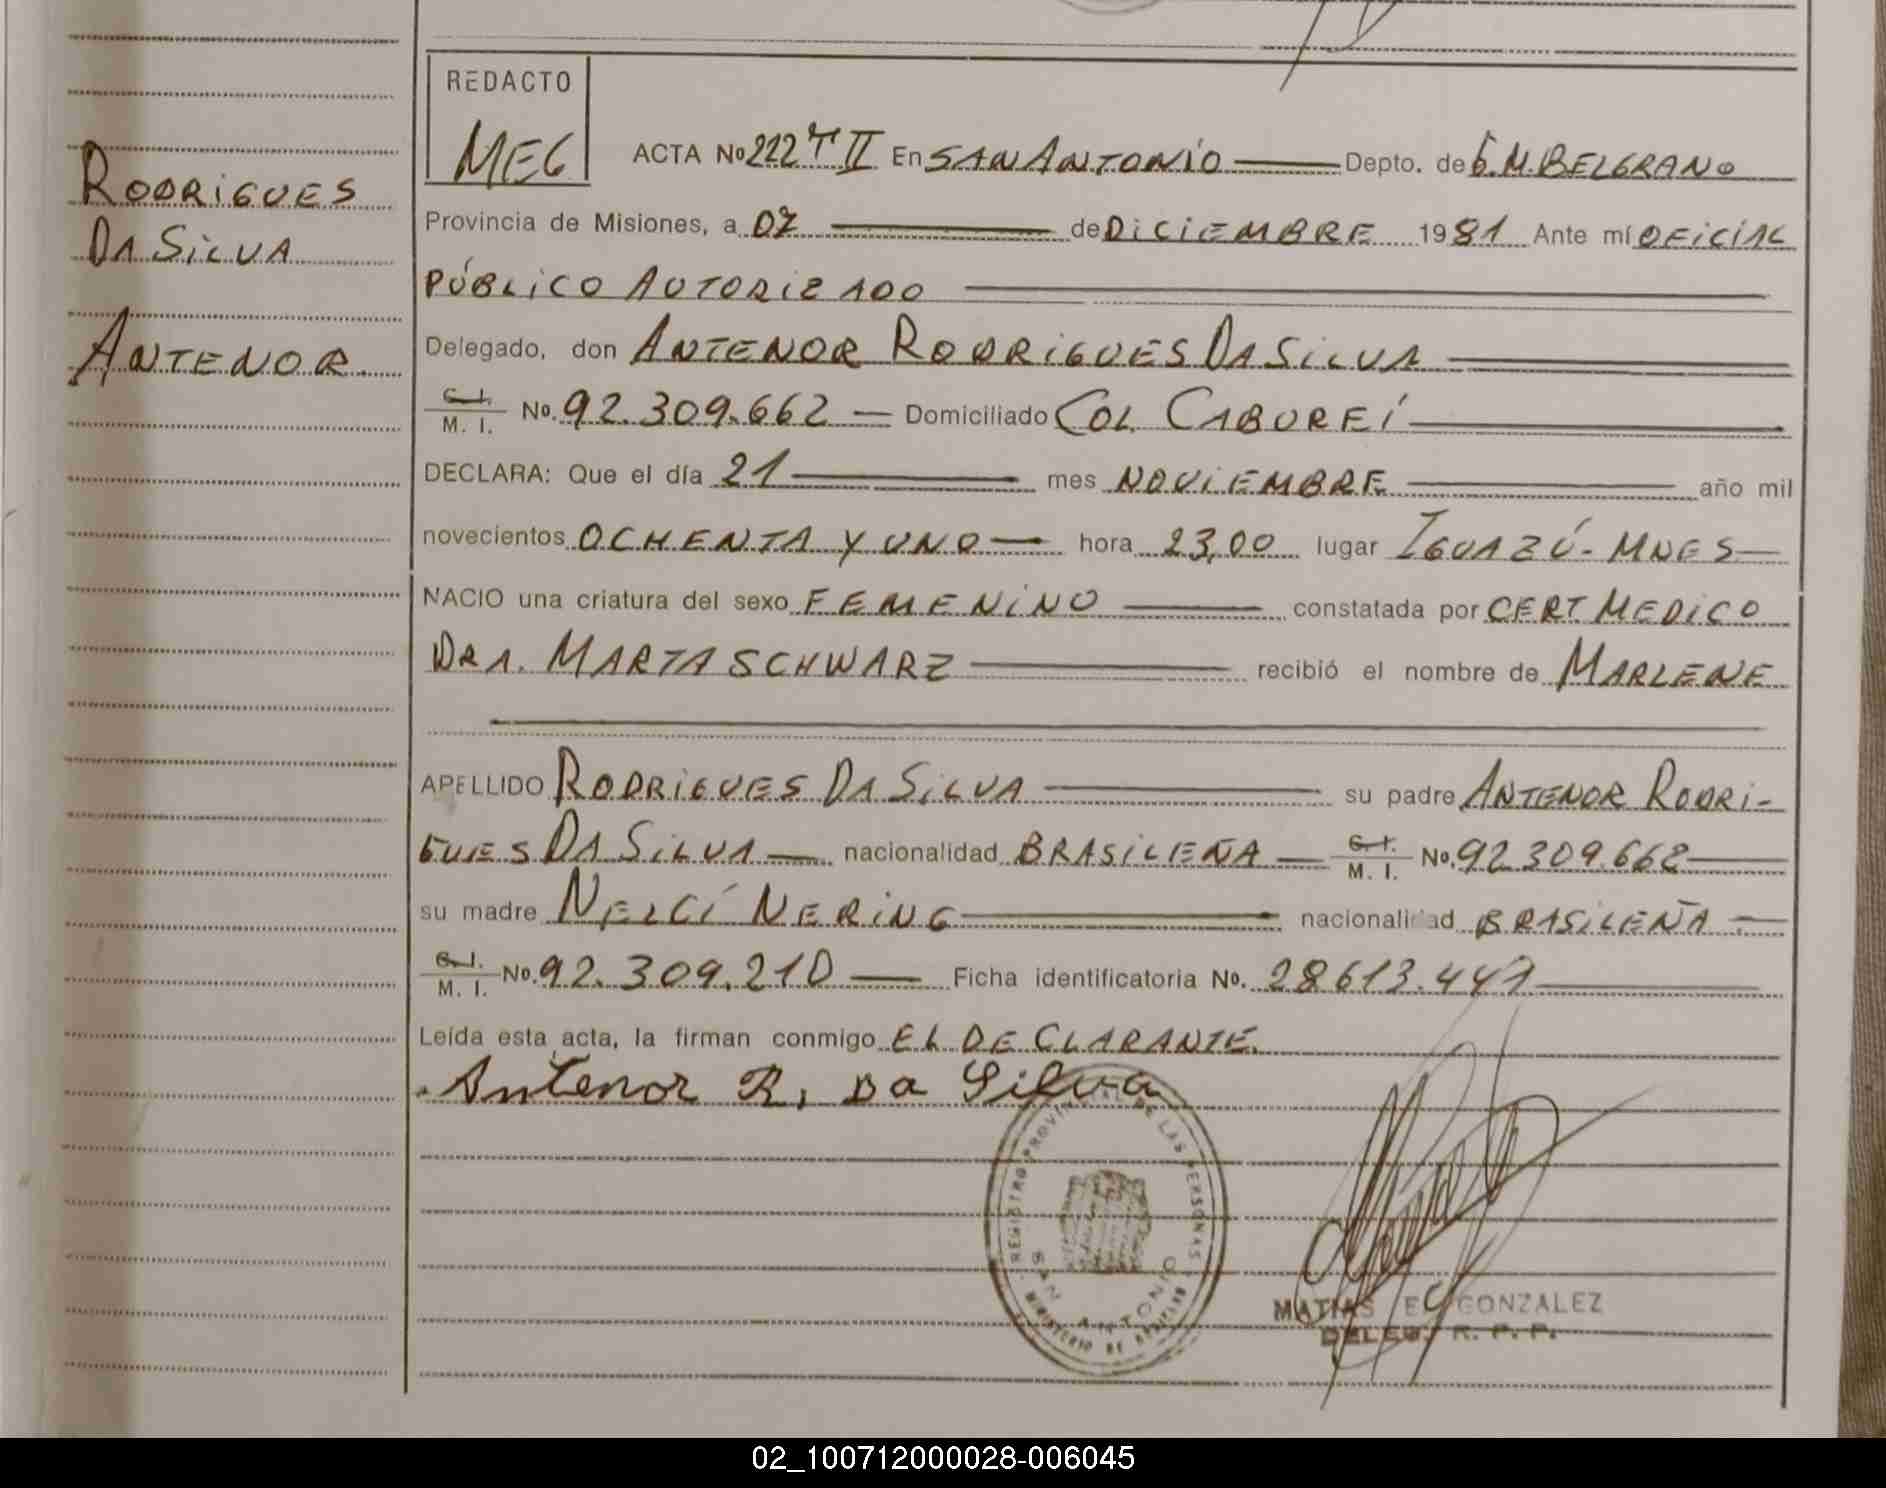 REDACTO
MEG
RODRIGUES
DA SILVA
ANTENOR
ACTA No 222 T II En SAN ANTONIO Depto. de G.M. BELGRANO
Provincia de Misiones, a 07 de DICIEMBRE 1981 Ante mí OFICIAL
PÚBLICO AUTORIZADO
Delegado, don ANTENOR RODRIGUES DA SILVA
C. I. / M. I. No. 92.309.662 Domiciliado COL. CABUREÍ
DECLARA: Que el día 21 mes NOVIEMBRE año mil
novecientos OCHENTA Y UNO hora 23,00 lugar IGUAZÚ - MNES
NACIO una criatura del sexo FEMENINO constatada por CERT. MEDICO
DRA. MARTA SCHWARZ recibió el nombre de MARLENE
APELLIDO RODRIGUES DA SILVA su padre ANTENOR RODRI-
GUES DA SILVA nacionalidad BRASILEÑA C. I. / M. I. No. 92.309.662
su madre NELCÍ NERING nacionalidad BRASILEÑA
C. I. / M. I. No. 92.309.210 Ficha identificatoria No. 28613.441
Leída esta acta, la firman conmigo EL DECLARANTE.
Antenor R, Da Silva
REGISTRO PROVINCIAL DE LAS PERSONAS
SAN ANTONIO
MINISTERIO DE
MATIAS E. GONZALEZ
DELEG. R. P. P.
02_100712000028-006045